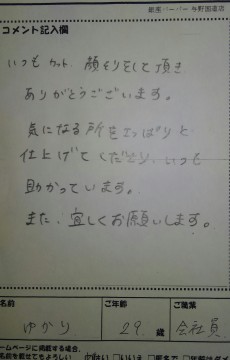 銀座バーバー 与野国道店
コメント記入欄
いつもカット、顔そりをして頂き
ありがとうございます。
気になる所をさっぱりと
仕上げてくださり、いつも
助かっています。
また、宜しくお願いします。
名前 ご年齢 ご職業
ゆかり 29 歳 会社員
ームページに掲載する場合、
名前を載せてもよろしい はい いいえ